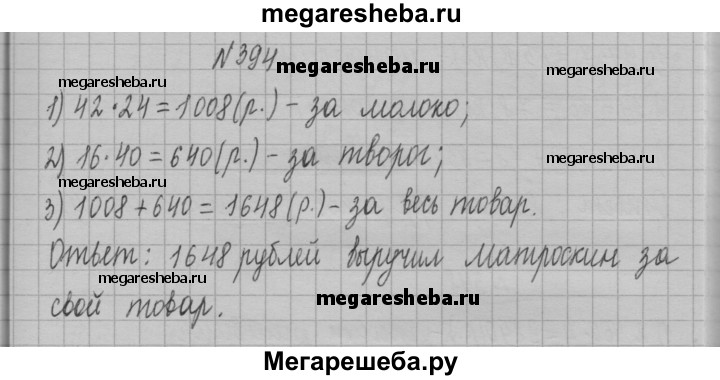 megaresheba.ru
№394
megaresheba.ru
megaresheba.ru
megaresheba.ru
1) 42·24=1008(р.) - за молоко;
2) 16·40=640(р.) - за творог;
megaresheba.ru
megaresheba.ru
3) 1008+640=1648(р.) - за весь товар.
Ответ: 1648 рублей выручил Матроскин за
megaresheba.ru
megaresheba.ru
свой товар.
megaresheba.ru
Мегарешеба.ру